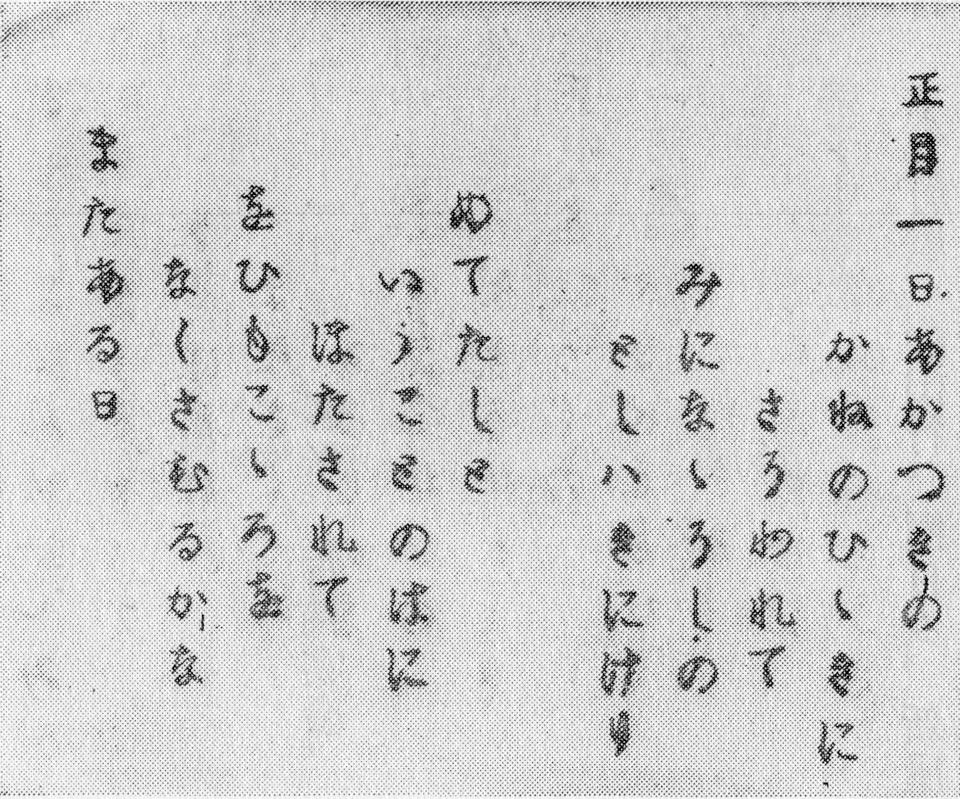 正月一日あかつきの
かねのひゝきに
さそわれて
みになゝそしの
としハきにけり
めてたしと
いうことのはに
ほたされて
をひもこゝろを
なくさむるかな
またある日